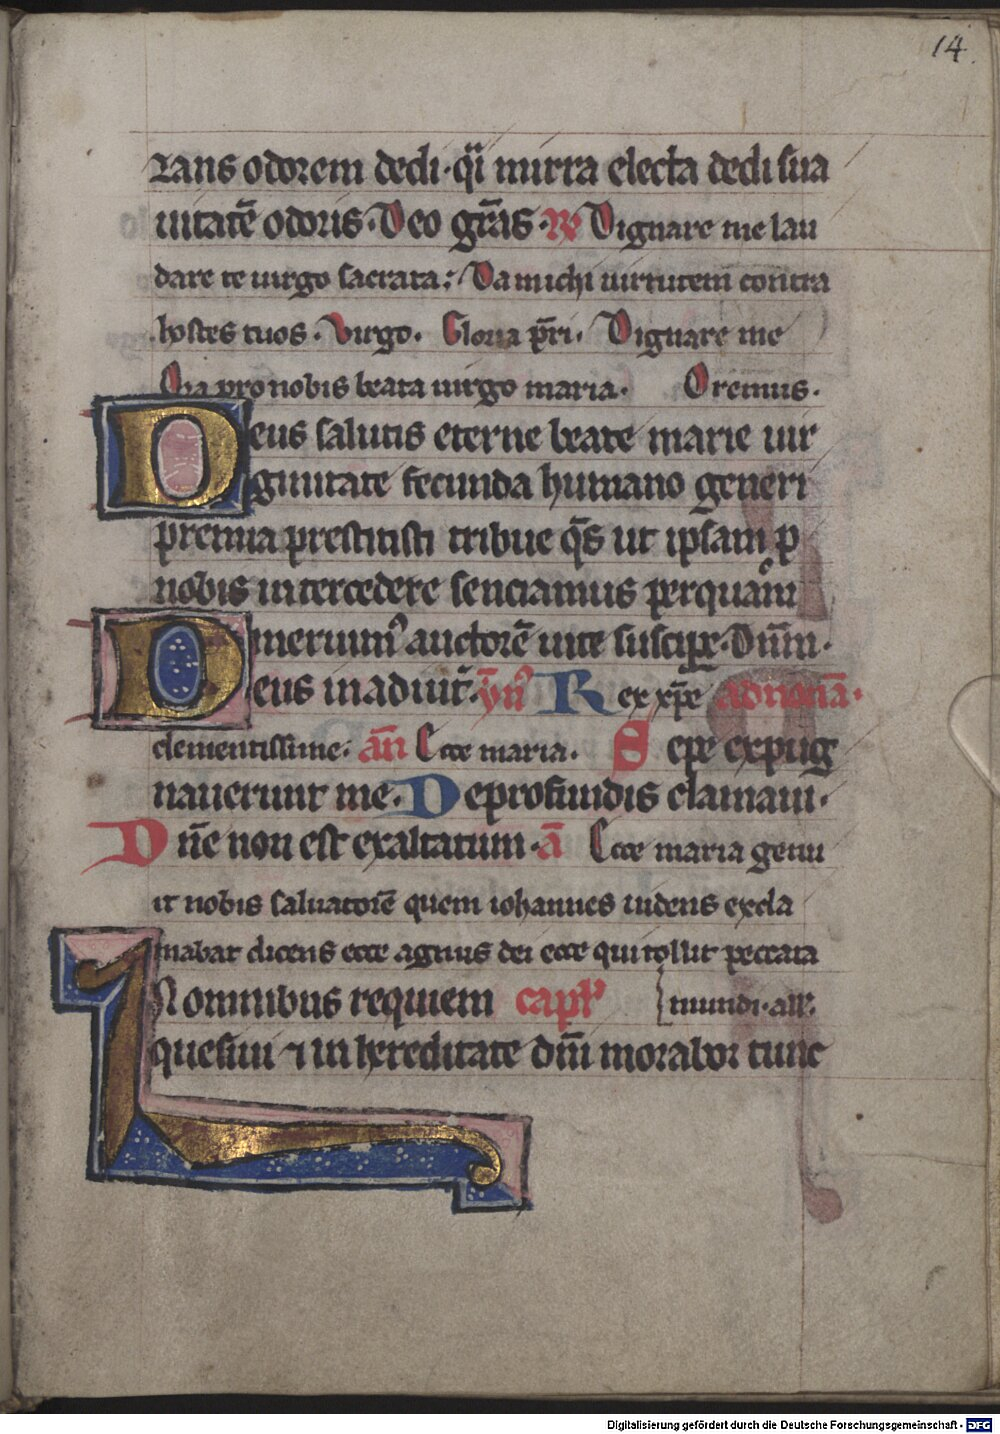 14.
rans odorem dedi·q̄i mirra electa dedi sua
uitatē odoris·Deo gr̄as·R̸ Dignare me lau
dare te uirgo sacrata: Da michi uirtutem contra
hostes tuos·Virgo. Gloria p̄ri. Dignare me
Ora pro nobis beata uirgo maria. Oremus.
Deus salutis eterne beate marie uir
ginitate fecunda humano generi
premia prestitisti tribue q̄s ut ipsam p
nobis intercedere senciamus per quam
meruim᷒ auctorē uite suscipe·Dn̄m·
Deus in adiut̄·yn᷒ Rex xp̄e ad nonā·
clementissime. an̄ Ecce maria. Sepe expug
nauerunt me. De profundis clamaui·
Dn̄e non est exaltatum·a̅ Ecce maria genu
it nobis saluatorē quem iohannes uidens excla
mabat dicens ecce agnus dei ecce qui tollit peccata
IN omnibus requiem capl̄ mundi·all᷒.
quesiui ⁊ in hereditate dn̄i morabor tunc
Digitalisierung gefördert durch die Deutsche Forschungsgemeinschaft - DFG